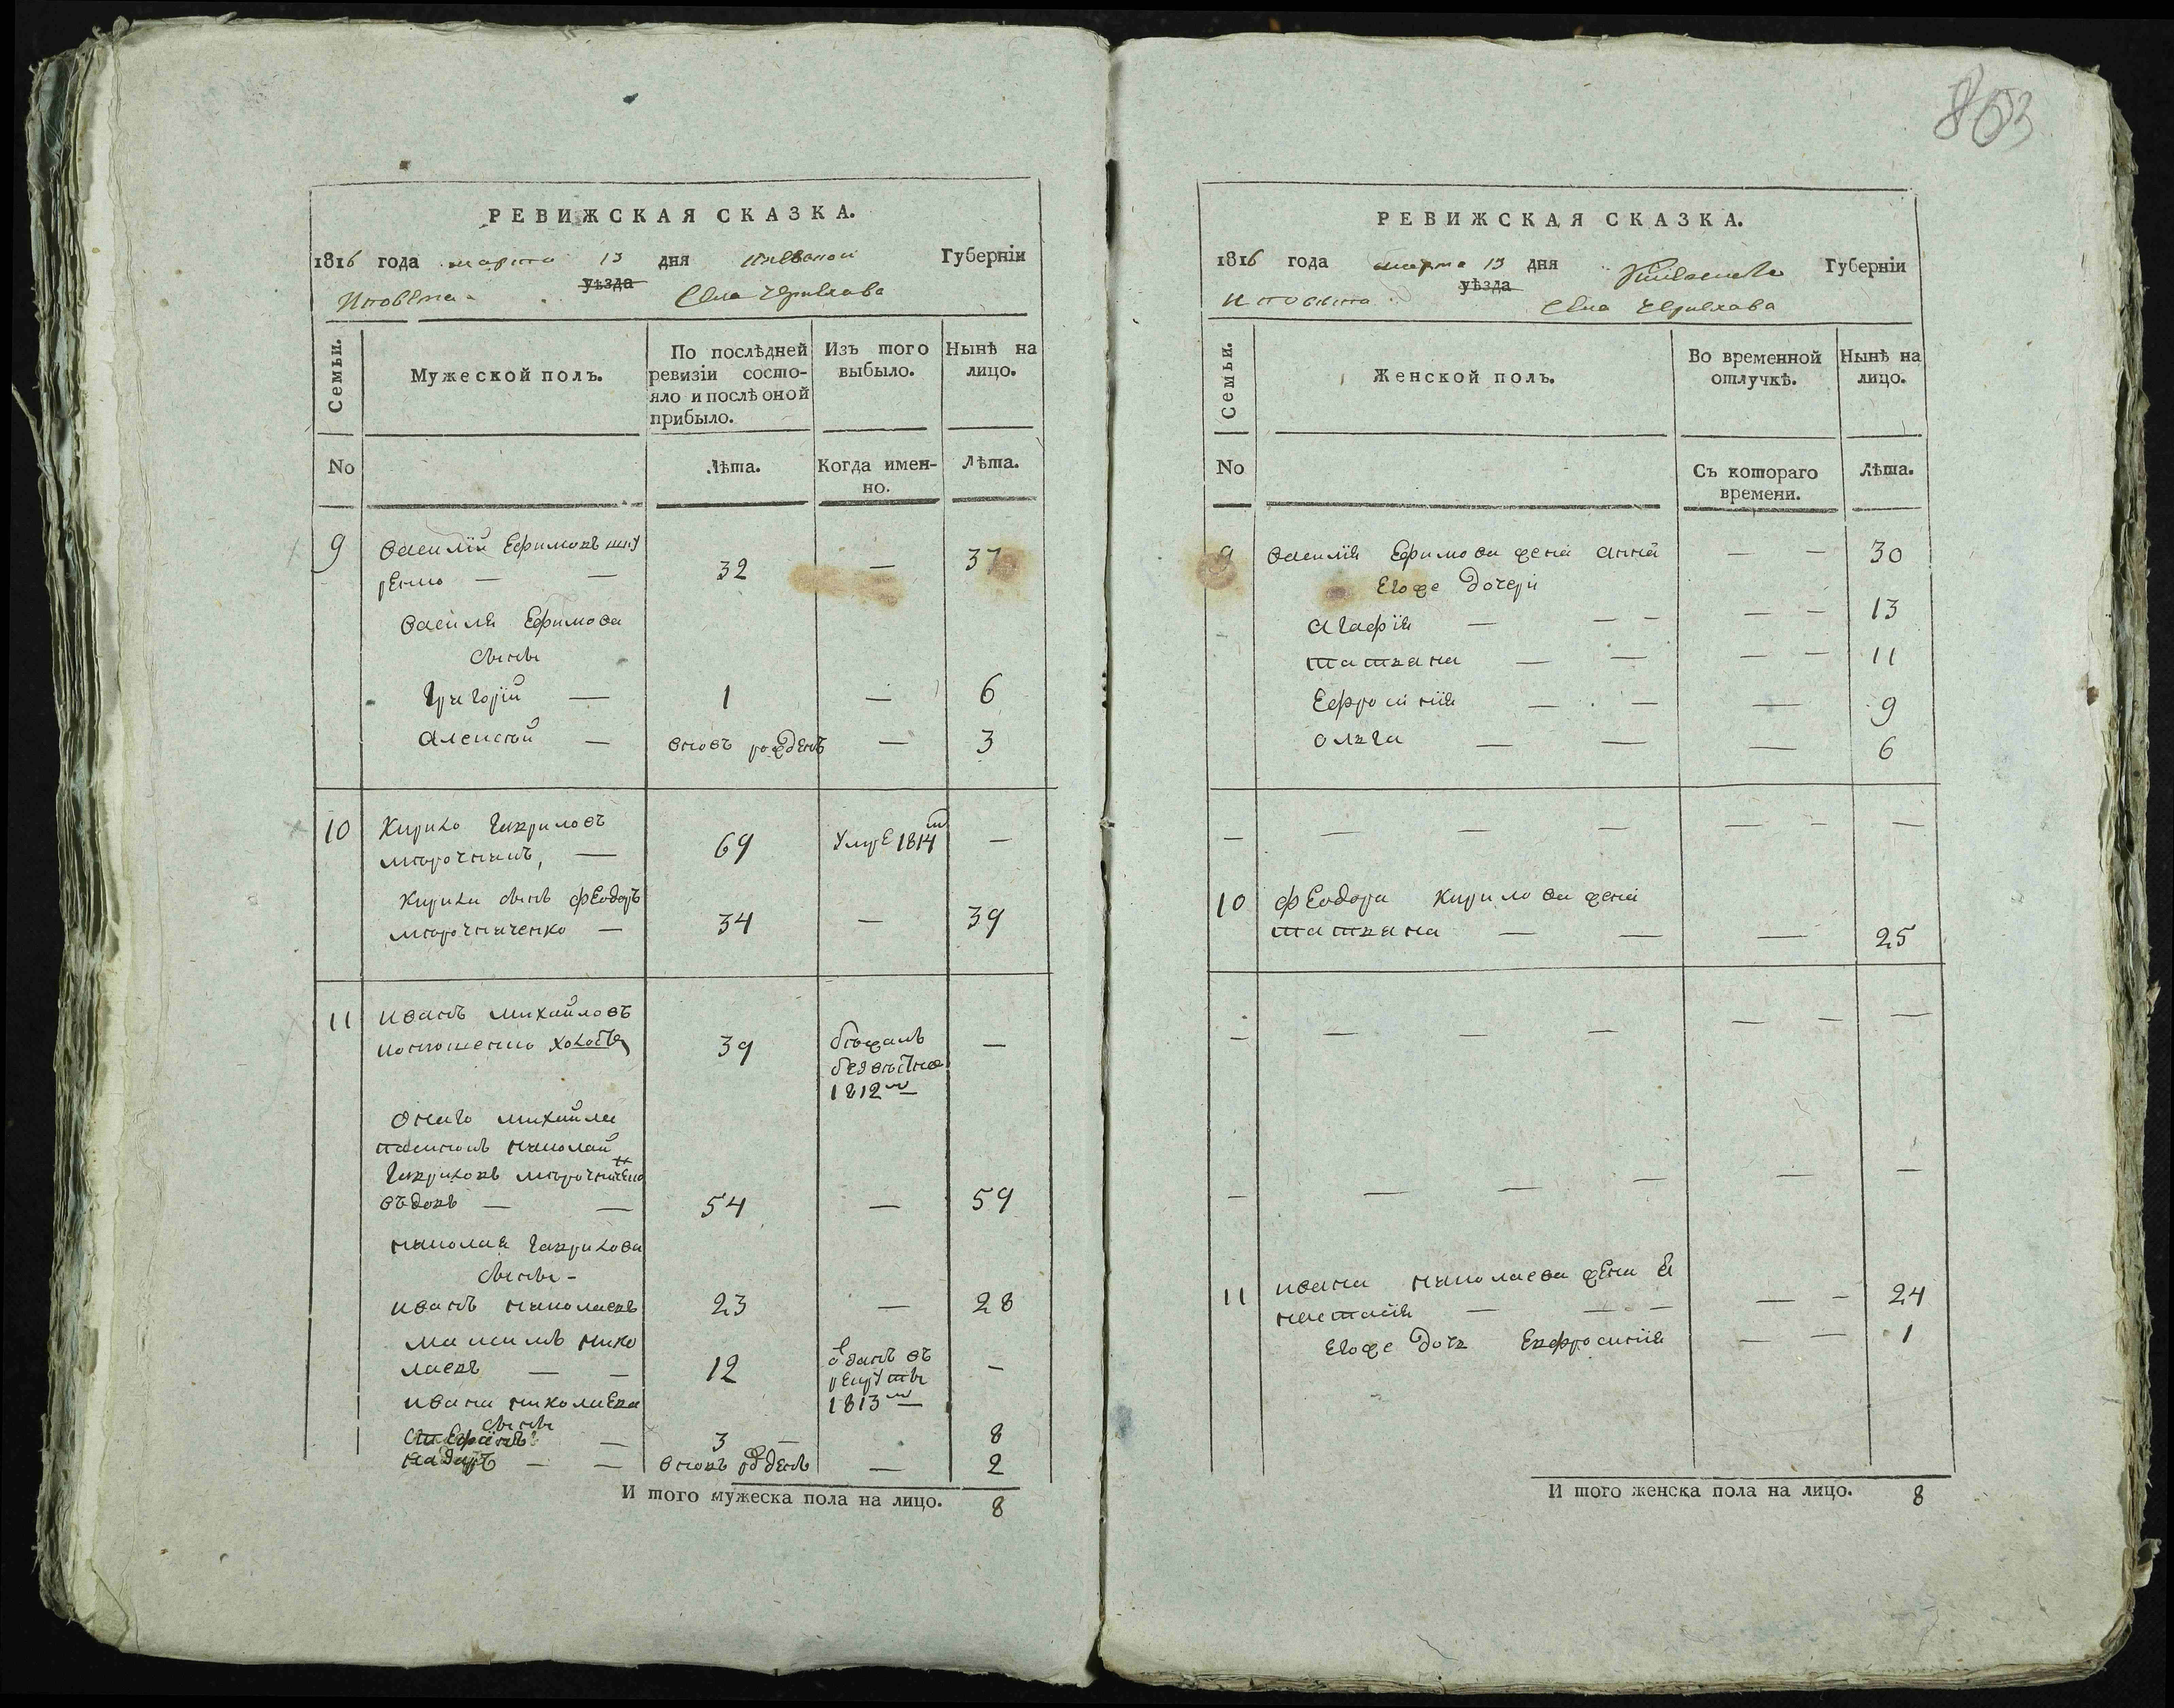 РЕВИЖСКАЯ СКАЗКА.
1816 года марта 13 дня Киевской Губерніи
Иповѣта уѣзда Села Черняхова
Семьи.
Мужеской полъ.
По послѣдней ревизіи состо-
яло и послѣ оной
прибыло.
Изъ того
выбыло.
Нынѣ на
лицо.
No
Лѣта.
Когда имен-
но.
Лѣта.
9 Василій Ефимовъ
32 — 37
Василя Ефимова
сыны
Григорій — 1 — 6
Алексѣй — вновь рожденъ — 3
10 Кирило Гавриловъ
— 69 Умре 1814 —
Кирила сынъ Феодоръ
— 34 — 39
11 Иванъ Михайловъ
холостъ 39 бѣжалъ —
безвѣстно
1812
Онаго Михайла
Николай
Гавриловъ
вдовъ — — 54 — 59
Николая Гаврилова
сыны -
Иванъ Николаевъ 23 — 28
Максимъ Нико
лаевъ — — 12 отданъ въ —
рекруты
1813
Ивана Николаева
сыны
Стефанъ — 3 — 8
Назаръ — — вновь рожденъ — 2
И того мужеска пола на лицо. 8
863
РЕВИЖСКАЯ СКАЗКА.
1816 года марта 13 дня Киевской Губерніи
Иповѣта уѣзда Села Черняхова
Семьи.
Женской полъ.
Во временной
отлучкѣ.
Нынѣ на
лицо.
No
Съ котораго
времени.
Лѣта.
9 Василія Ефимова жена Анна — — 30
Егоже дочери
Агафія — — — — — 13
Татяна — — — — 11
Ефросинія — — — 9
Олга — — — 6
— — — — — — —
10 Феодора Кирилова жена
Татяна — — — 25
— — — — — — —
— — — — — —
11 Ивана Николаева жена А
настасія — — — — — 24
Егоже дочь Евфросинія — — 1
И того женска пола на лицо. 8